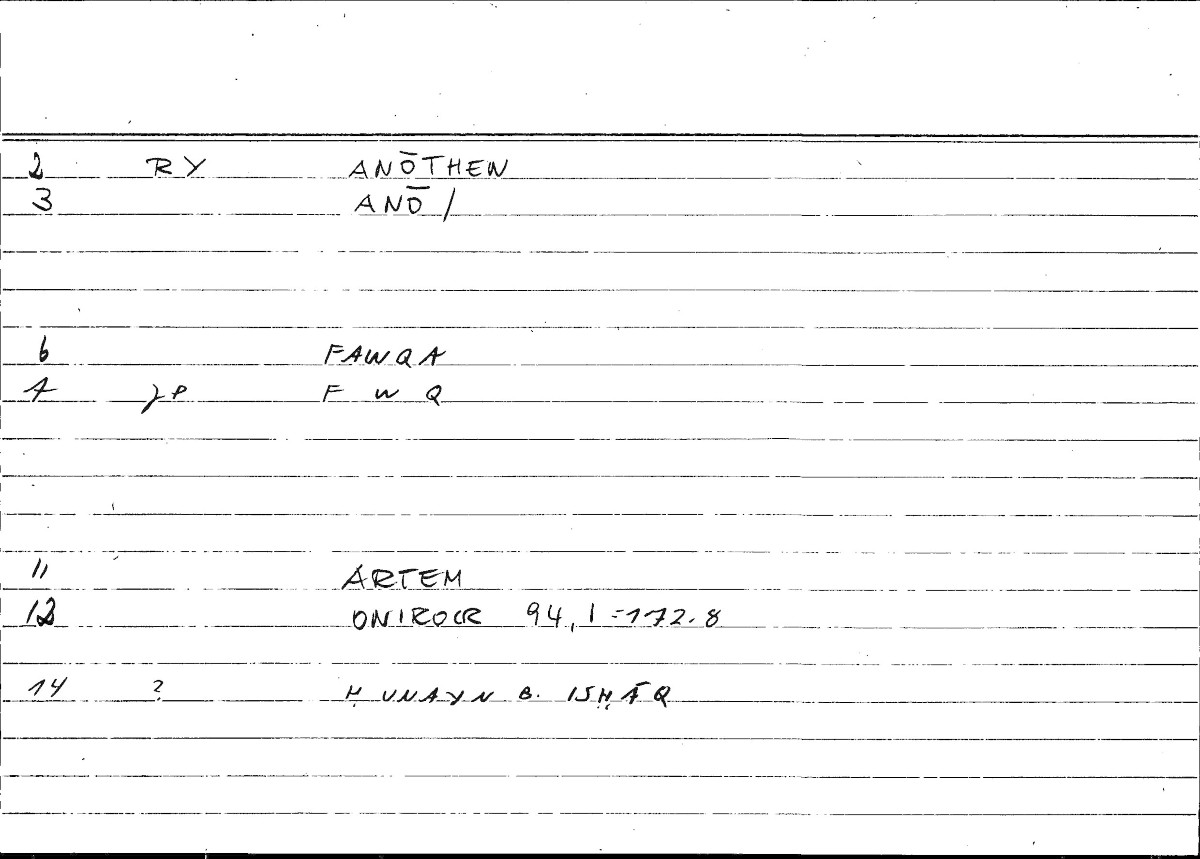 2 RY ANŌTHEN
3 ANŌ /
6 FAWQA
7 JP F W Q
11 ARTEM
12 ONIROCR 94,1=172.8
14 ? ḤUNAYN B. ISḤĀQ